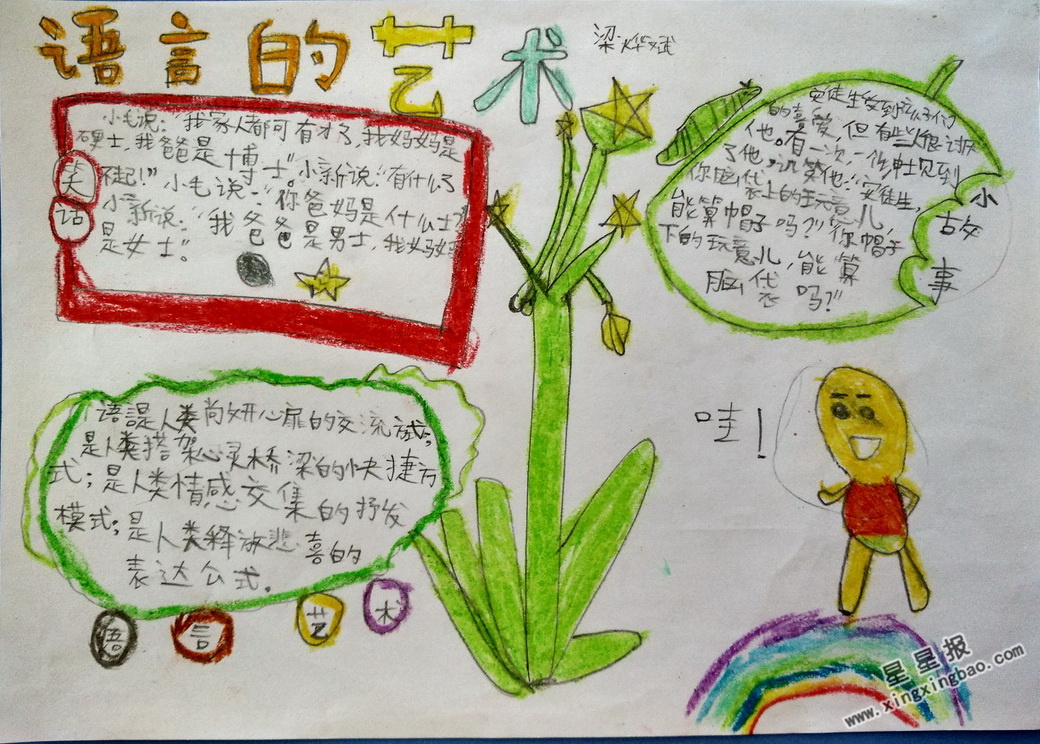 语言的艺术
梁烨斌
笑话
小毛说:"我家人都可有才了,我妈妈是
硕士,我爸爸是博士"。小新说:"有什么了
不起!"小毛说:"你爸妈是什么士?"
小新说:"我爸爸是男士,我妈妈
是女士"。
小故事
安徒生受到孩子们
的喜爱,但有些人很讨厌
他。有一次,一个绅士见到
了他,讥笑他:"安徒生,
你脑袋上的玩意儿,
能算帽子吗?"你帽子
下的玩意儿,能算
脑袋吗?"
语言是人类尚妍心扉的交流
是人类搭架心灵桥梁的快捷方
式;是人类情感交集的抒发
模式;是人类释放悲喜的
表达公式。
语言艺术
哇!
星星报
www.xingxingbao.com